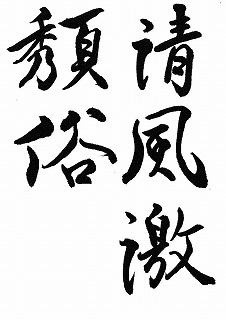 清風激
頽俗